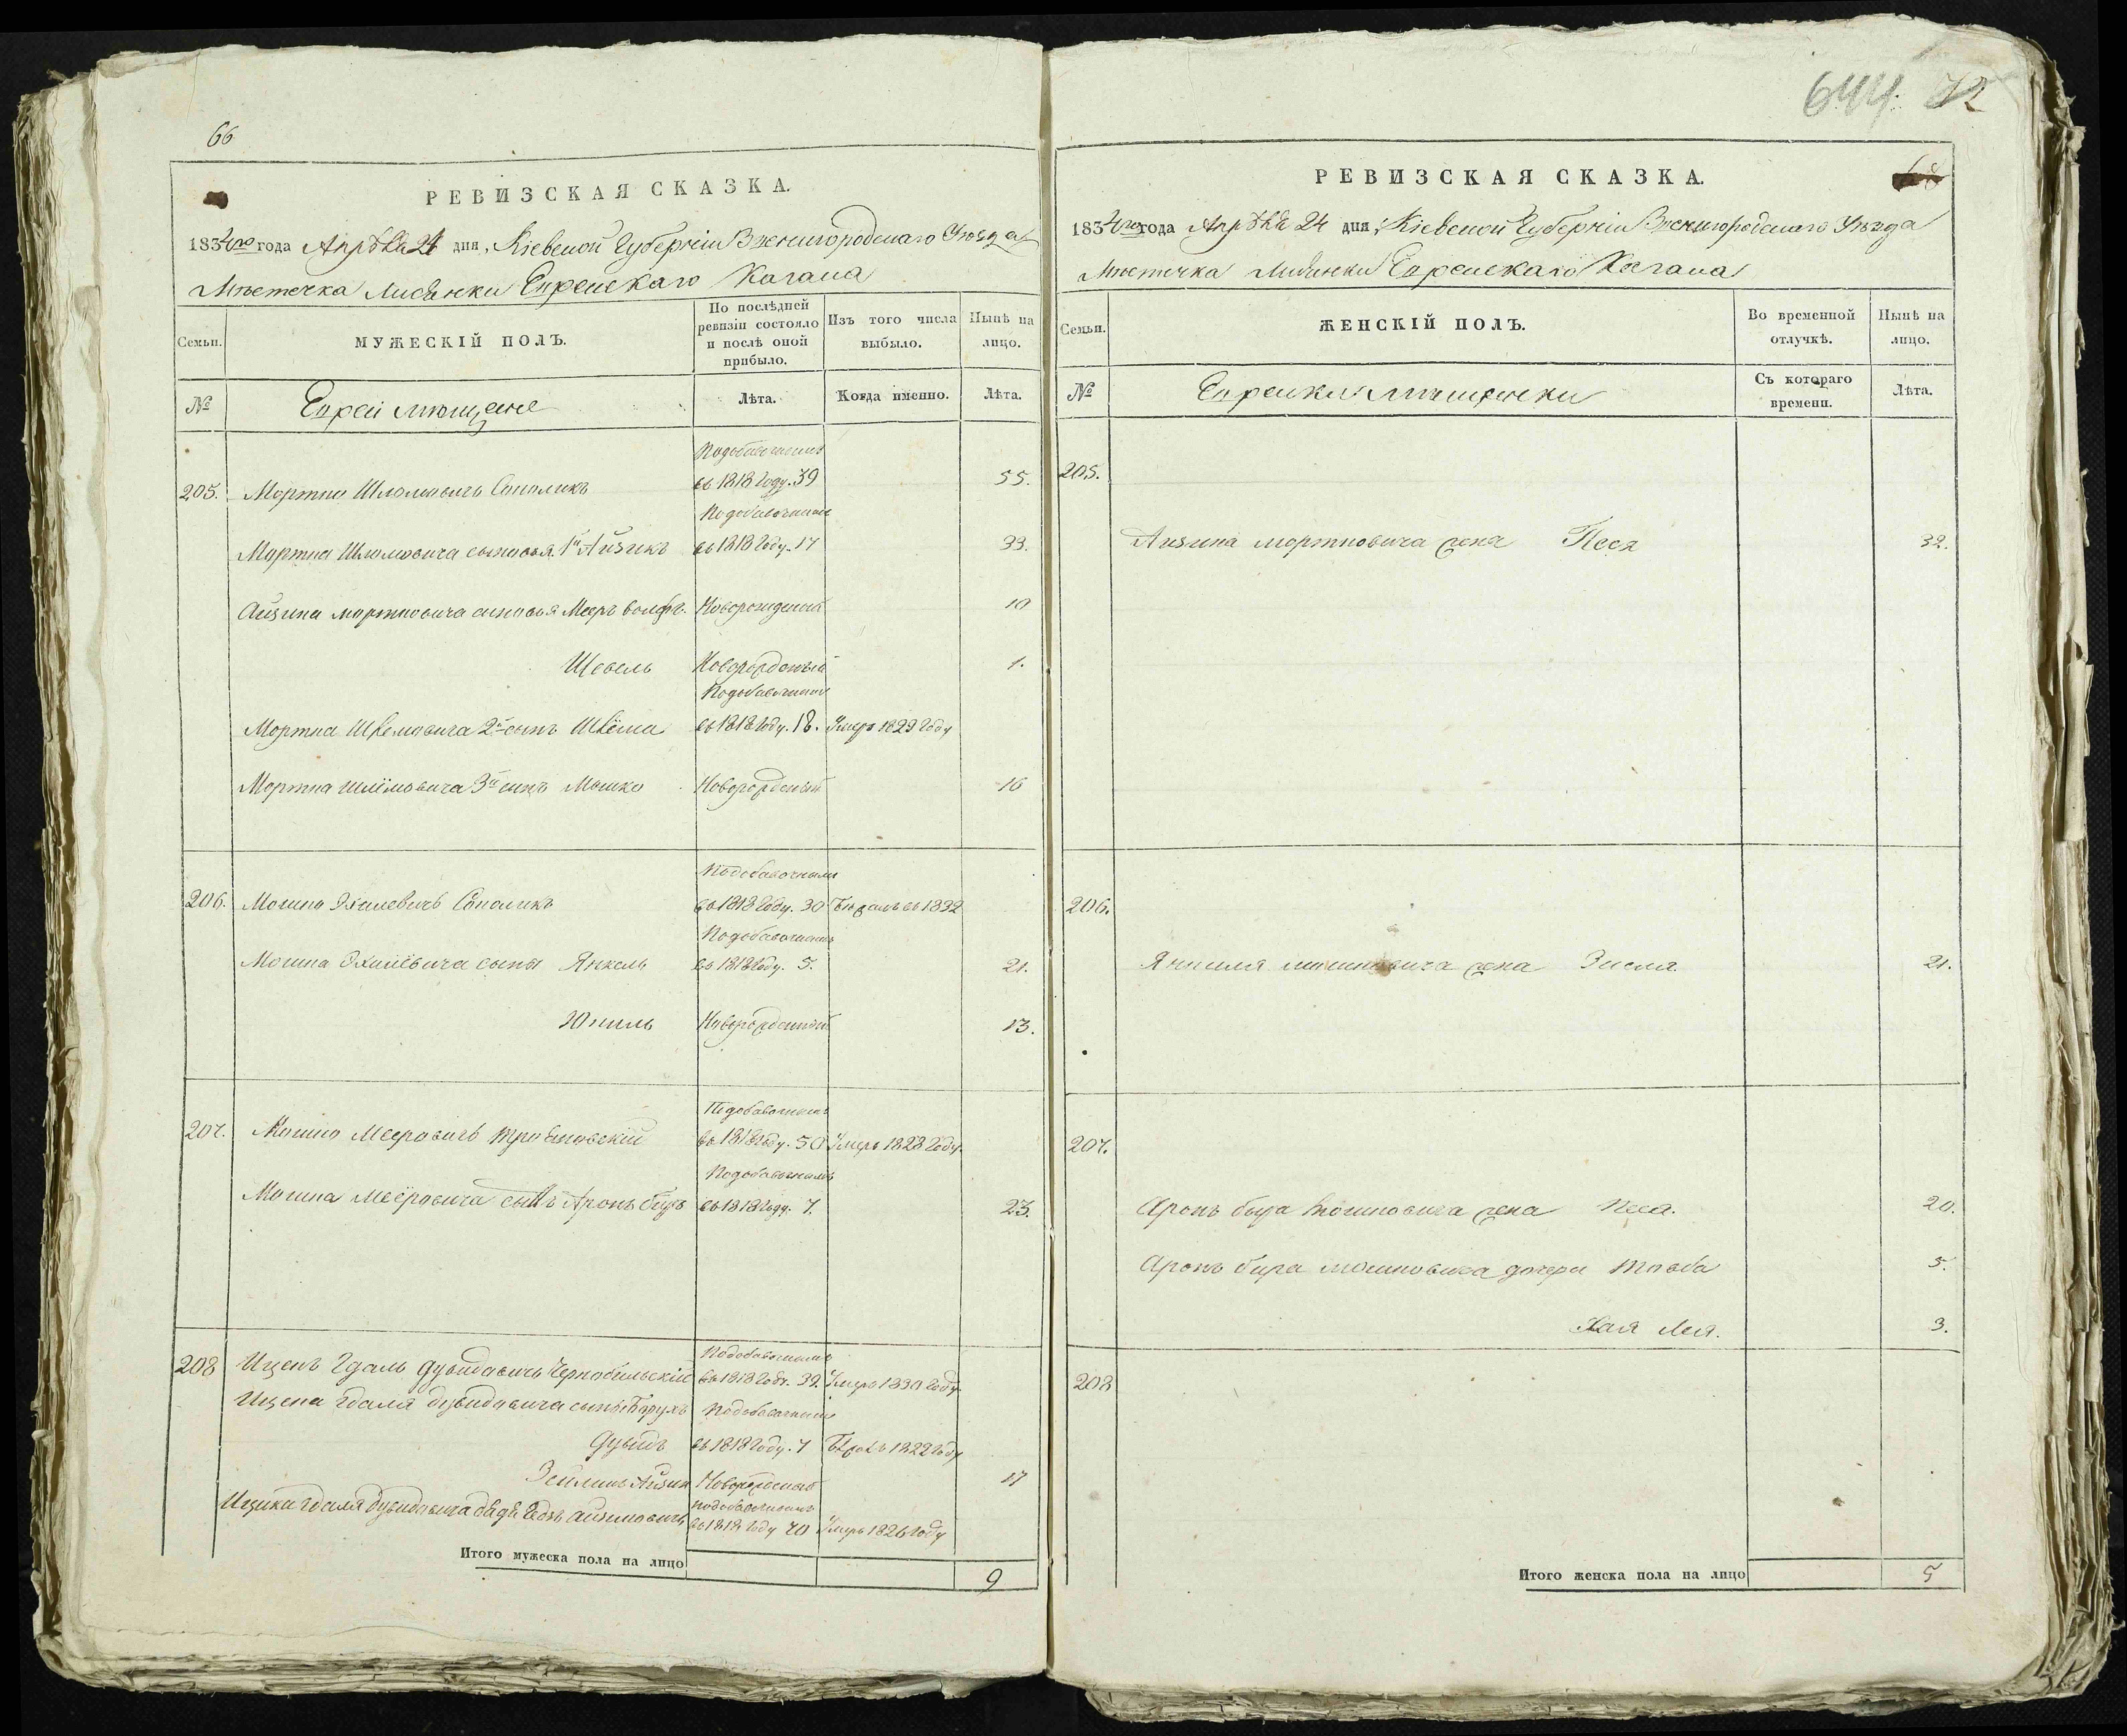 66
РЕВИЗСКАЯ СКАЗКА.
1834го года Апрѣля 24 дня, Кіевской Губерніи Звенигородскаго Уѣзда
Мѣстечка Лисянки Еврейскаго Кагала
Семьи.
МУЖЕСКІЙ ПОЛЪ.
По послѣдней ревизіи состояло и послѣ оной прибыло.
Изъ того числа выбыло.
Нынѣ на лицо.
№
Евреи мѣщане
Лѣта.
Когда именно.
Лѣта.
205. Мортко Шлюмовичъ Саполикъ
Подобавочнымъ
въ 1818 Году. 39
55.
Мортка Шлюмовича сыновья 1й Айзикъ
Подобавочнымъ
въ 1818 Году. 17
33.
Айзика мортковича сыновья Меръ Волфъ. Новорожденый 10
Шевель Новорожденый 1.
Мортка Шлемовича 2й сынъ Шлёма
Подобавочнымъ
въ 1818 Году. 18. Умеръ 1829 Году
Мортка Шлёмовича 3й сынъ Мошко Новорожденый 16
206. Мошко Хилевичъ Саполикъ
Подобавочнымъ
въ 1818 Году. 30 Бѣжалъ въ 1832
Мошка Хилевича сыны Янкель
Подобавочнымъ
въ 1818 Году. 5.
21.
Юкиль Новорожденный 13.
207. Мошко Мееровичъ
Подобавочнымъ
въ 1818 Году. 50 Умеръ 1828 Году.
Мошка Меёровича сынъ Аронъ Беръ
Подобавочнымъ
въ 1818 Году. 7.
23.
208 Ицекъ Гдаль Дувидовичъ Чернобильскій
Подобавочнымъ
въ 1818 Году. 39. Умеръ 1830 Году.
Ицека Гдаля Дувидовича сыны Борухъ
Подобавочнымъ
Дувидъ въ 1818 Году. 7 1822 Году
Зейликъ Айзик Новорожденый 17
Ицика Гдаля Дувидовича дядя Айзиковичъ
подобавочнымъ
въ 1818 Году 70 Умеръ 1826 Году
Итого мужеска пола на лицо
9
644. 72
68
РЕВИЗСКАЯ СКАЗКА.
1834го года Апрѣля 24 дня, Кіевской Губерніи Звенигородскаго Уѣзда
Мѣстечка Лисянки Еврейскаго Кагала
Семьи.
ЖЕНСКІЙ ПОЛЪ.
Во временной отлучкѣ.
Нынѣ на лицо.
№
Еврейки мѣщанки
Съ котораго времени.
Лѣта.
205.
Айзика мортковича жена Песя 32.
206.
Янкеля мошковича жена Зисля. 21.
207.
Аронъ Бера мошковича жена Песя. 20.
Аронъ Бера мошковича дочери Товба 5.
Хая Лея. 3.
208
Итого женска пола на лицо
5